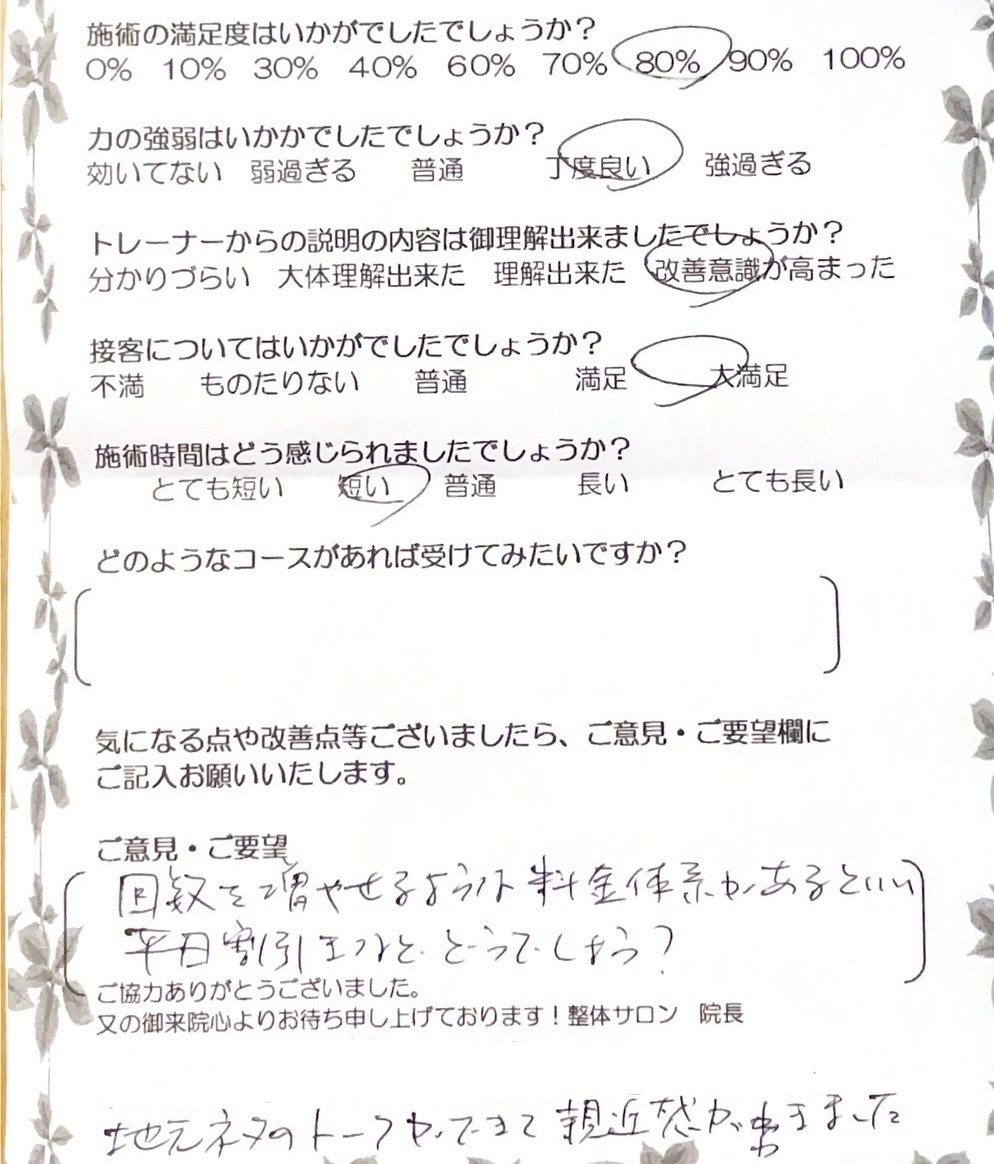 施術の満足度はいかがでしたでしょうか？
0% 10% 30% 40% 60% 70% 80% 90% 100%
力の強弱はいかかでしたでしょうか？
効いてない 弱過ぎる 普通 丁度良い 強過ぎる
トレーナーからの説明の内容は御理解出来ましたでしょうか？
分かりづらい 大体理解出来た 理解出来た 改善意識が高まった
接客についてはいかがでしたでしょうか？
不満 ものたりない 普通 満足 大満足
施術時間はどう感じられましたでしょうか？
とても短い 短い 普通 長い とても長い
どのようなコースがあれば受けてみたいですか？
気になる点や改善点等ございましたら、ご意見・ご要望欄に
ご記入お願いいたします。
ご意見・ご要望
回数を増やせるような料金体系があるといい
平日割引 とどうでしょう？
ご協力ありがとうございました。
又の御来院心よりお待ち申し上げております！整体サロン 院長
地元ネタのトークができて親近感がわきました